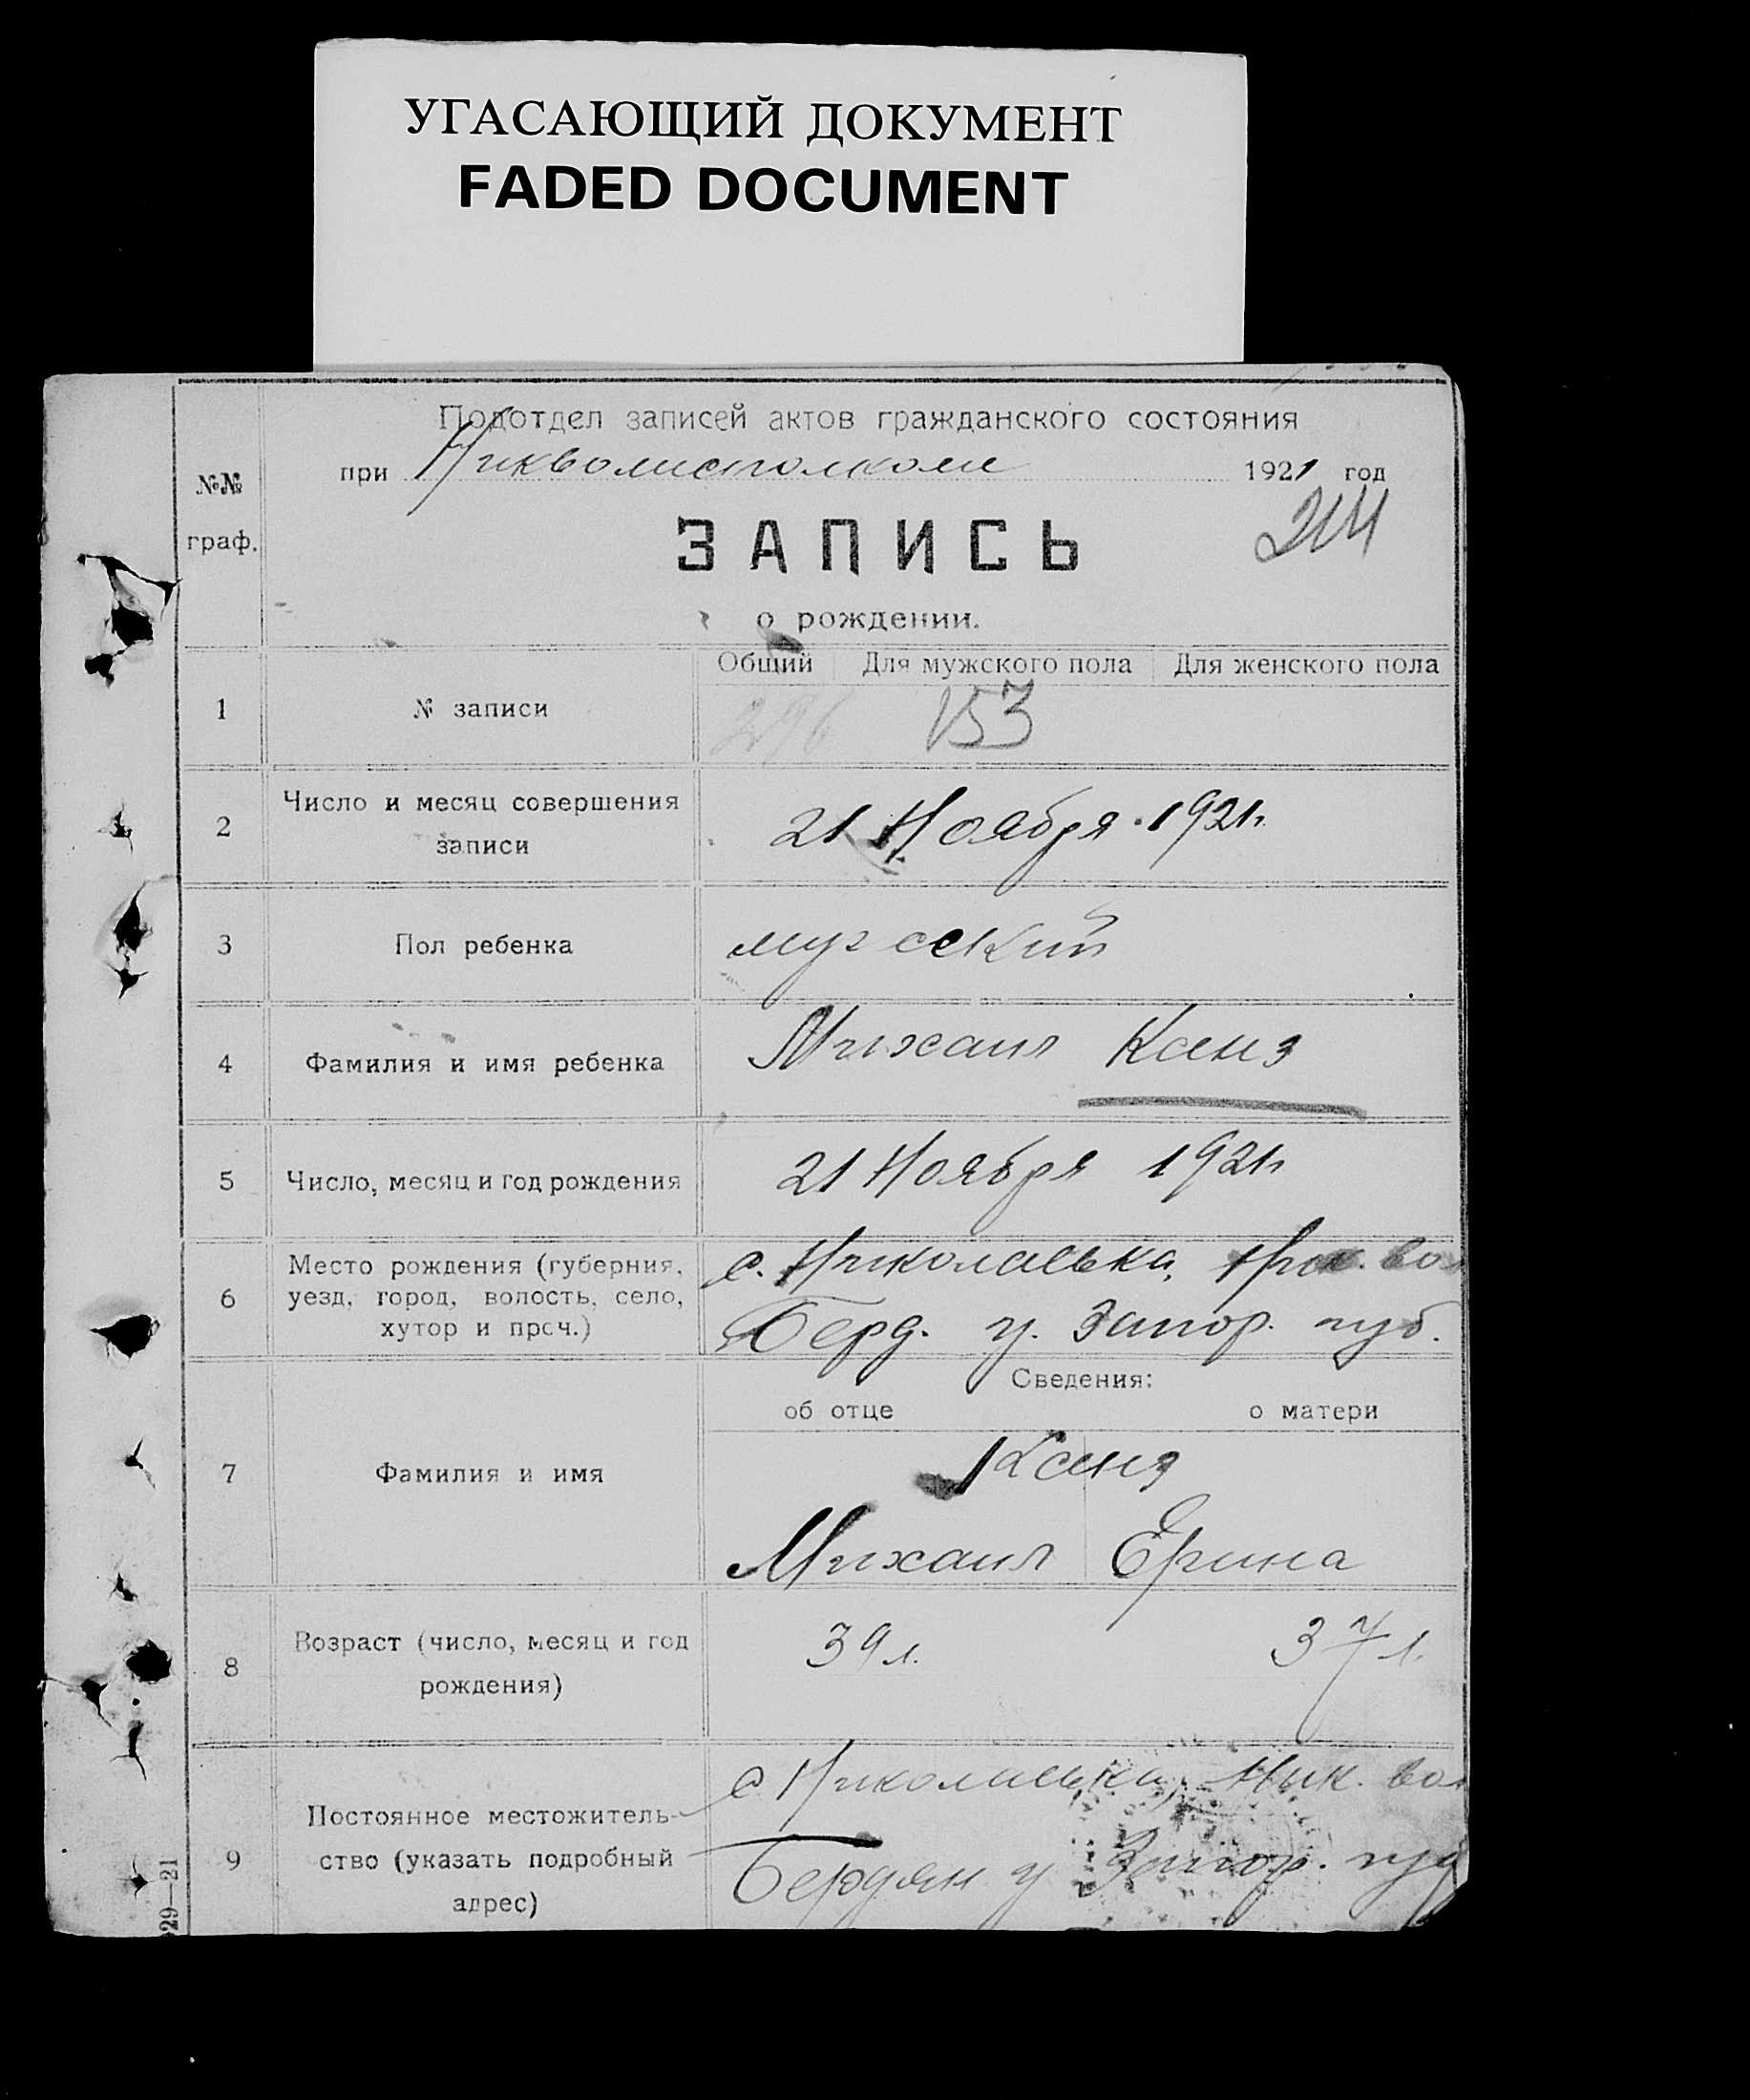 УГАСАЮЩИЙ ДОКУМЕНТ
FADED DOCUMENT
Подотдел записей актов гражданского состояния
№№ граф.
при Никволисполкоме 1921 год
214
ЗАПИСЬ
о рождении.
Общий Для мужского пола Для женского пола
1 № записи 296 153
2 Число и месяц совершения записи 21 Ноября 1921г.
3 Пол ребенка мужеский
4 Фамилия и имя ребенка Михаил Канз
5 Число, месяц и год рождения 21 Ноября 1921г
6 Место рождения (губерния, уезд, город, волость, село, хутор и проч.)
с. Николаевка, Ник. вол
Берд. у. Запор. губ.
Сведения:
об отце о матери
7 Фамилия и имя Канз
Михаил Ерина
8 Возраст (число, месяц и год рождения) 39 л. 37 л.
9 Постоянное местожительство (указать подробный адрес)
с Николаевка, Ник. вол
Бердян у Запор. губ
29—21